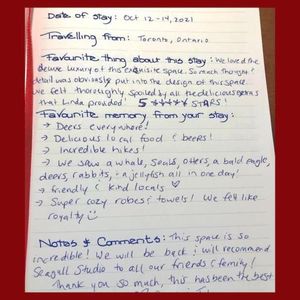 Date of stay: Oct 12-14, 2021
Travelling from: Toronto, Ontario
Favourite thing about this stay: We loved the
deluxe luxury of this exquisite space. So much thought &
detail was obviously put into the design of this space.
We felt thoroughly spoiled by all the delicious extras
that Linda provided! 5 ★★★★★ STARS!
Favourite memory from your stay:
→ Deers everywhere!
→ Delicious local food & beers!
→ Incredible hikes!
→ We saw a whale, seals, otters, a bald eagle,
deers, rabbits, & jellyfish all in one day!
→ friendly & kind locals ♡
→ Super cozy robes & towels! We felt like
royalty ☺
Notes & Comments: This space is so
incredible! We will be back & will recommend
Seagull Studio to all our friends & family!
Thank you so much, this has been the best